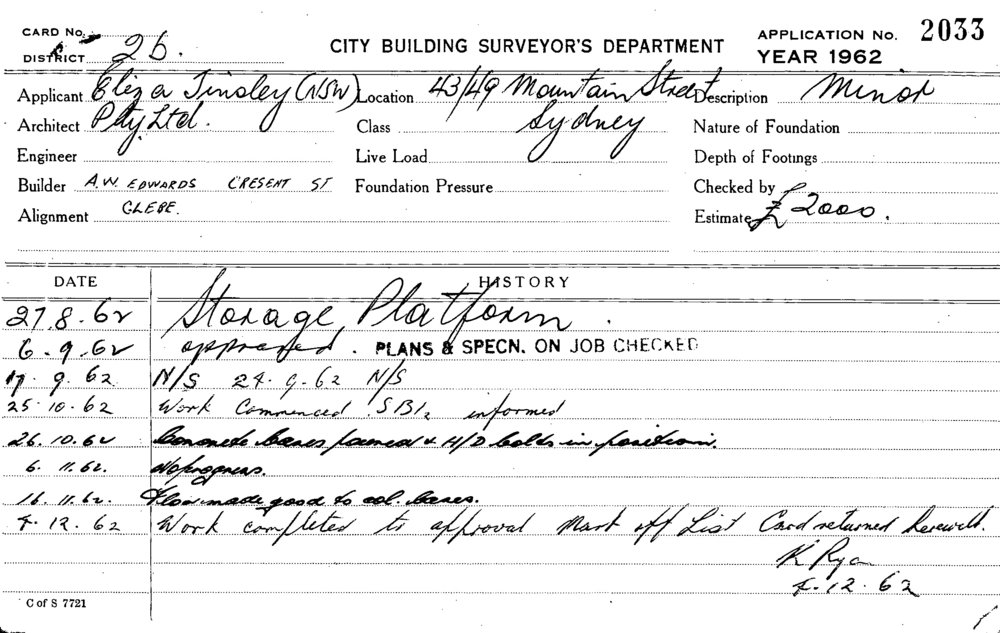 CARD No.
DISTRICT 2b.
CITY BUILDING SURVEYOR'S DEPARTMENT
APPLICATION No. 2033
YEAR 1962
Applicant Eliza Tinsley (NSW) Location 43/49 Mountain Street Description Minor
Architect Pty Ltd. Class Sydney Nature of Foundation
Engineer Live Load Depth of Footings
Builder A.W. EDWARDS CRESENT ST Foundation Pressure Checked by
Alignment GLEBE. Estimate £2000.
DATE HISTORY
27.8.62 Storage Platform.
6.9.62 approved. PLANS & SPECN. ON JOB CHECKED
17.9.62 N/S 24.9.62 N/S
25.10.62 Work Commenced informed
26.10.62 Concrete bases poured & H/D bolts in position.
6.11.62. No progress.
16.11.62. Floor made good to col. bases.
4.12.62 Work completed to approval Mark off List Card returned herewith.
K Ryan
4.12.62
C of S 7721